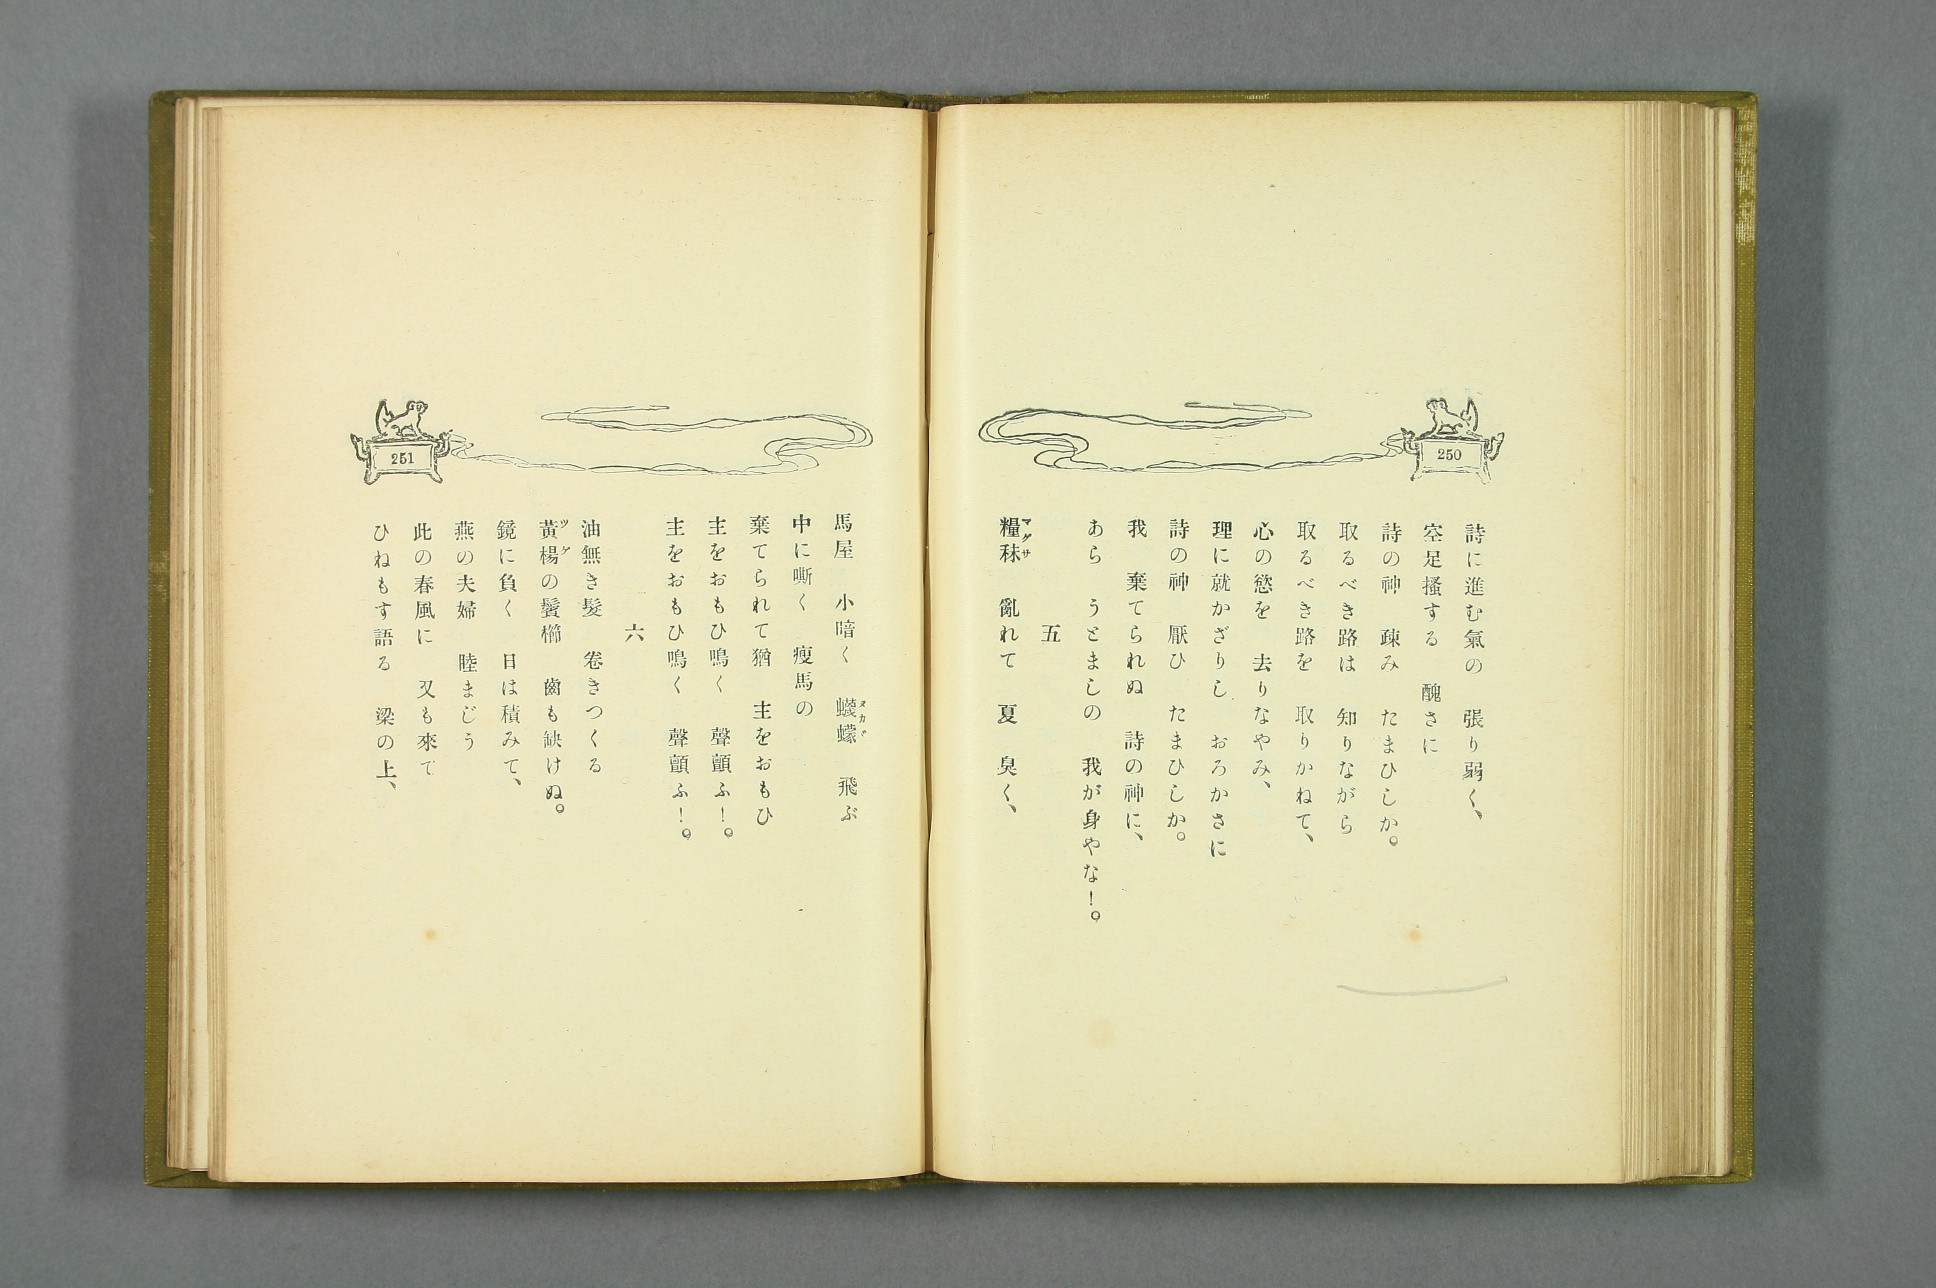 250
詩に進む氣の　張り弱く、
空足搔する　醜さに
詩の神　疎み　たまひしか。
取るべき路は　知りながら
取るべき路を　取りかねて、
心の慾を　去りなやみ、
理に就かざりし　おろかさに
詩の神　厭ひ　たまひしか。
我　棄てられぬ　詩の神に、
あら　うとましの　我が身やな！。
五
糧秣　亂れて　夏　臭く、
マグサ
251
馬屋　小暗く　蠛蠓　飛ぶ
ヌカガ
中に嘶く　瘦馬の
棄てられて猶　主をおもひ
主をおもひ鳴く　聲顫ふ！。
主をおもひ鳴く　聲顫ふ！。
六
油無き髮　卷きつくる
黃楊の鬢櫛　齒も缺けぬ。
ツゲ
鏡に負く　日は積みて、
燕の夫婦　睦まじう
此の春風に　又も來て
ひねもす語る　梁の上、